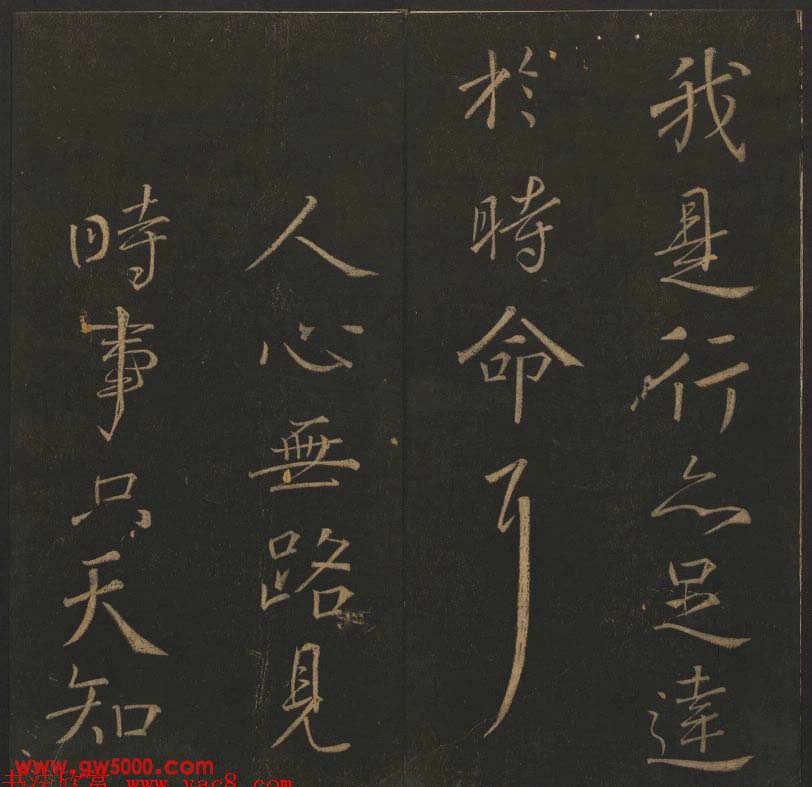 我是行亦足達
於時命耳
人心無路見
時事只天知
www.gw5000.com
书法欣赏 www.yac8.com